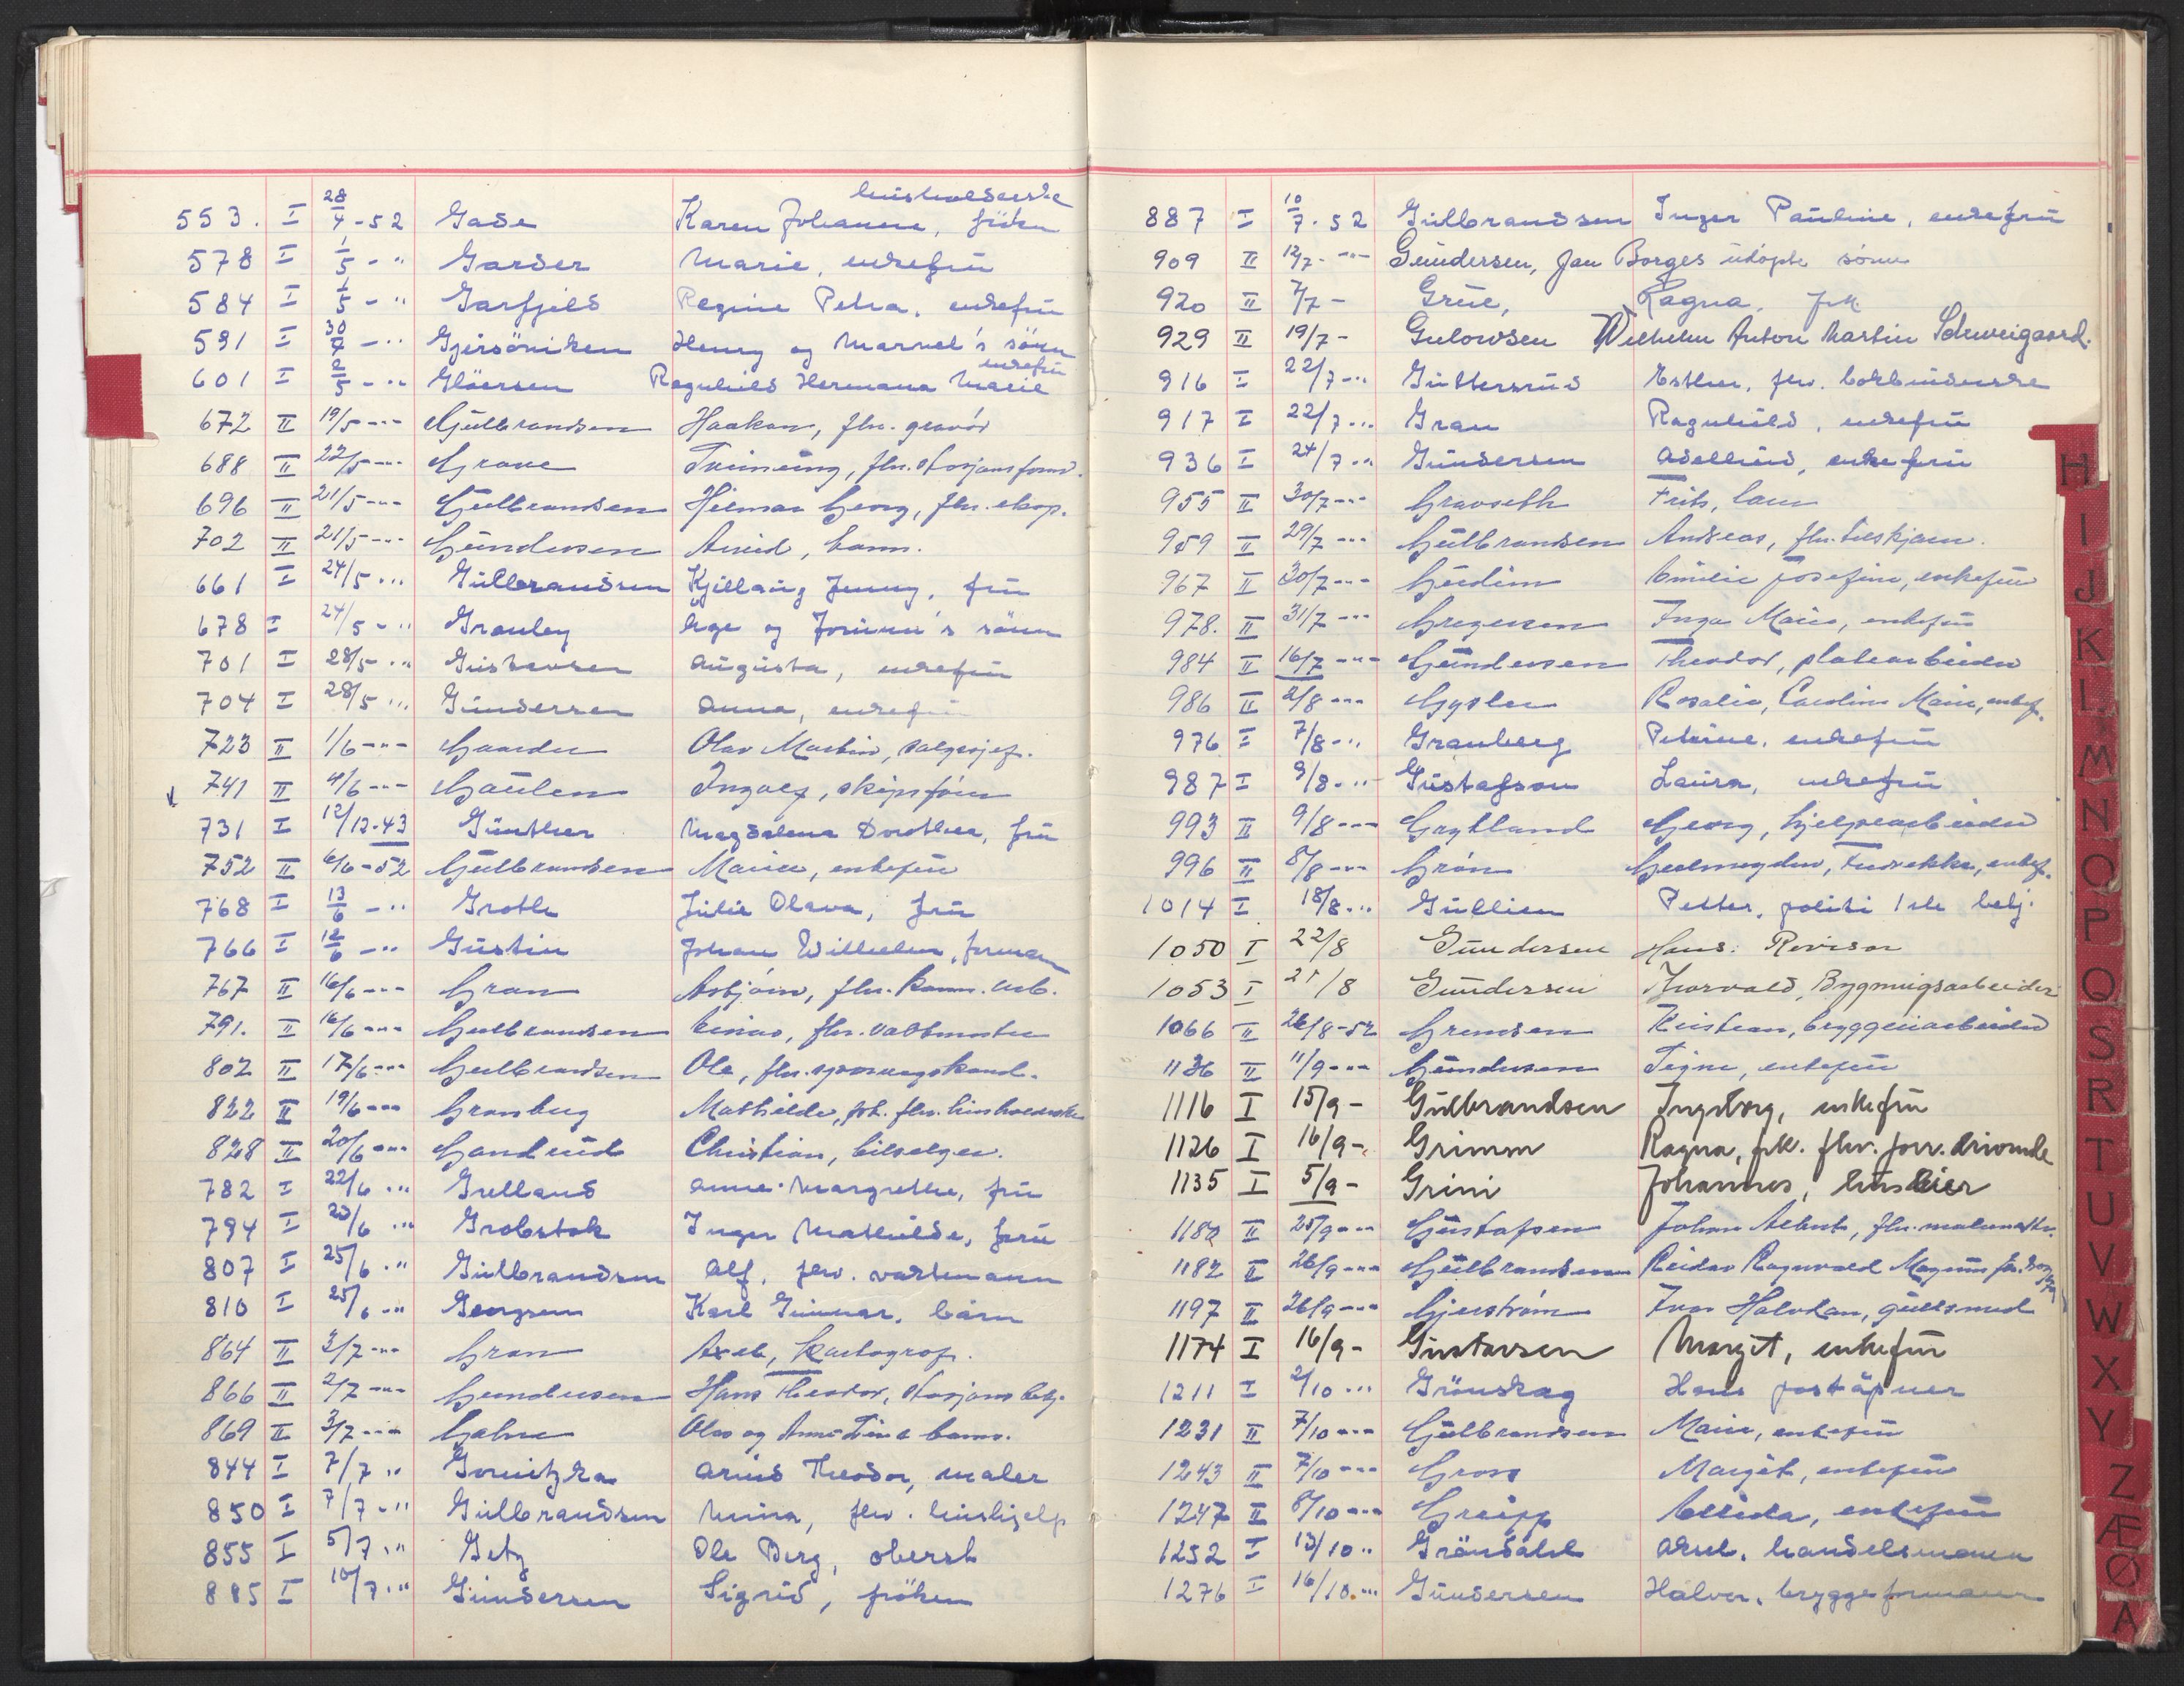 553. I 28/4-52 Gade Karen Johanne, frøken husholderske
578 I 1/5-" Garder Marie, enkefru
584 I 1/5-" Garfjeld Regine Petra, enkefru
591 I 30/4-" Henny og Marvel's sønn
601 I 2/5-" Gløersen Ragnhild Hermana Marie enkefru
672 II 19/5-"- Gulbrandsen Haakon, fhv. gravør
688 II 22/5-"- Grave fhv. stasjonsform.
696 II 21/5-"- Gulbrandsen Hilmar Georg, fhv. eksp.
702 II 21/5-"- Gundersen barn.
661 I 24/5-" Gulbrandsen Kjellaug Jenny, fru
678 I 24/5-" Granley Åge og Jorunn's sønn
701 I 28/5-" Gustavsen Augusta, enkefru
704 I 28/5-" Gundersen Anna, enkefru
723 II 1/6-"- Gaarder Olav Martin, salgssjef.
741 II 4/6-"- Gaulen Ingolf, skipsfører
731 I 12/12-43 Günther Magdalena Dorothea, fru
752 II 6/6-52 Gulbrandsen Marie, enkefru
768 I 13/6-" Groth Julie Olava, fru
766 I 12/6-" Gustin Johan Wilhelm, formann
767 II 16/6-"- Gran Asbjørn, fhv. arb.
791. II 16/6-"- Gulbrandsen Einar, fhv.
802 II 17/6-"- Gulbrandsen Ole, fhv.
822 II 19/6-"- Granberg Mathilde, frk. fhv. husholderske
828 II 20/6-"- Gandrud Christian, bilselger.
782 I 22/6-" Grelland Anne-Margrethe, fru
794 I 23/6-" Grobstok Inger Mathilde, fru
807 I 25/6-" Gulbrandsen Alf, fhv. vaktmann
810 I 25/6-" Georgsen Karl Gunnar, barn
864 II 3/7-"- Gran Axel, Kartograf.
866 II 2/7-"- Gundersen Hans Theodor, stasjonsbetj.
869 II 3/7-"- barn.
844 I 7/7-" Gornitzka Arnd Theodor, maler
850 I 7/7-" Gulbrandsen Minna, fhv. hushjelp
855 I 5/7-" Getz Ole Berg, oberst
885 I 10/7-" Gundersen Sigrid, frøken
887 I 10/7-52 Gulbrandsen Inger Pauline, enkefru
909 II 12/7-"- Gundersen, Jan Borges udøpte sønn
920 II 7/7- Grue, Ragna, frk.
929 II 19/7- Gulowsen Wilhelm Anton Martin Schweigaard.
916 I 22/7-" Guttersrud Esther, fhv. bokbinderske
917 I 22/7-" Gran Ragnhild, enkefru
936 I 24/7-" Gundersen Adellund, enkefru
955 II 30/7-"- Gravseth Frits,
959 II 29/7-"- Gulbrandsen Andreas, fhv.
967 II 30/7-"- Gudim Emilie Josefine, enkefru
978. II 31/7-"- Gregersen Inga Marie, enkefru
984 II 16/7-"- Gundersen Theodor, platearbeider
986 II 2/8-"- Gysler Rosalie, Caroline Marie, enkef.
976 I 7/8-" Granberg Petrine, enkefru
987 I 9/8-" Gustafson Laura, enkefru
993 II 9/8-"- Grytland Georg, hjelpearbeider
996 II 8/8-"- Grøn Fredrikke, enkef.
1014 I 18/8-" Gullien Petter, politi 1ste betj.
1050 I 22/8 Gundersen Hans. Revisor
1053 I 21/8 Gundersen Thorvald, Bygningsarbeider
1066 II 26/8-52 Grensen Kristian, bryggeriarbeider
1136 II 11/9-"- Gundersen Signe, enkefru
1116 I 15/9- Gulbrandsen Ingeborg, enkefru
1126 I 16/9- Grimm Ragna, frk. fhv. forr.drivende
1135 I 5/9- Grini Johannes, huseier
1180 II 25/9-"- Gustafson Johan Albert, fhv. malermester.
1182 II 26/9-"- Gulbrandsen Reidar Ragnvald Magnus
1197 II 26/9-"- Gjerstrøm Halvdan, gullsmed
1174 I 16/9- Gustavsen Margit, enkefru
1211 I 2/10-" Grönskag Hans poståpner
1231 II 7/10-"- Gulbrandsen Marie, enkefru
1243 II 7/10-"- Gross Margit, enkefru
1247 II 8/10-"- Greipp Ellida, enkefru
1252 I 13/10-" Gröndahl Aksel, handelsmann
1276 I 16/10-" Gundersen Halvor, bryggeformann
H
I
J
K
L
M
N
O
P
Q
S
R
T
U
V
W
X
Y
Z
Æ
Ø
A